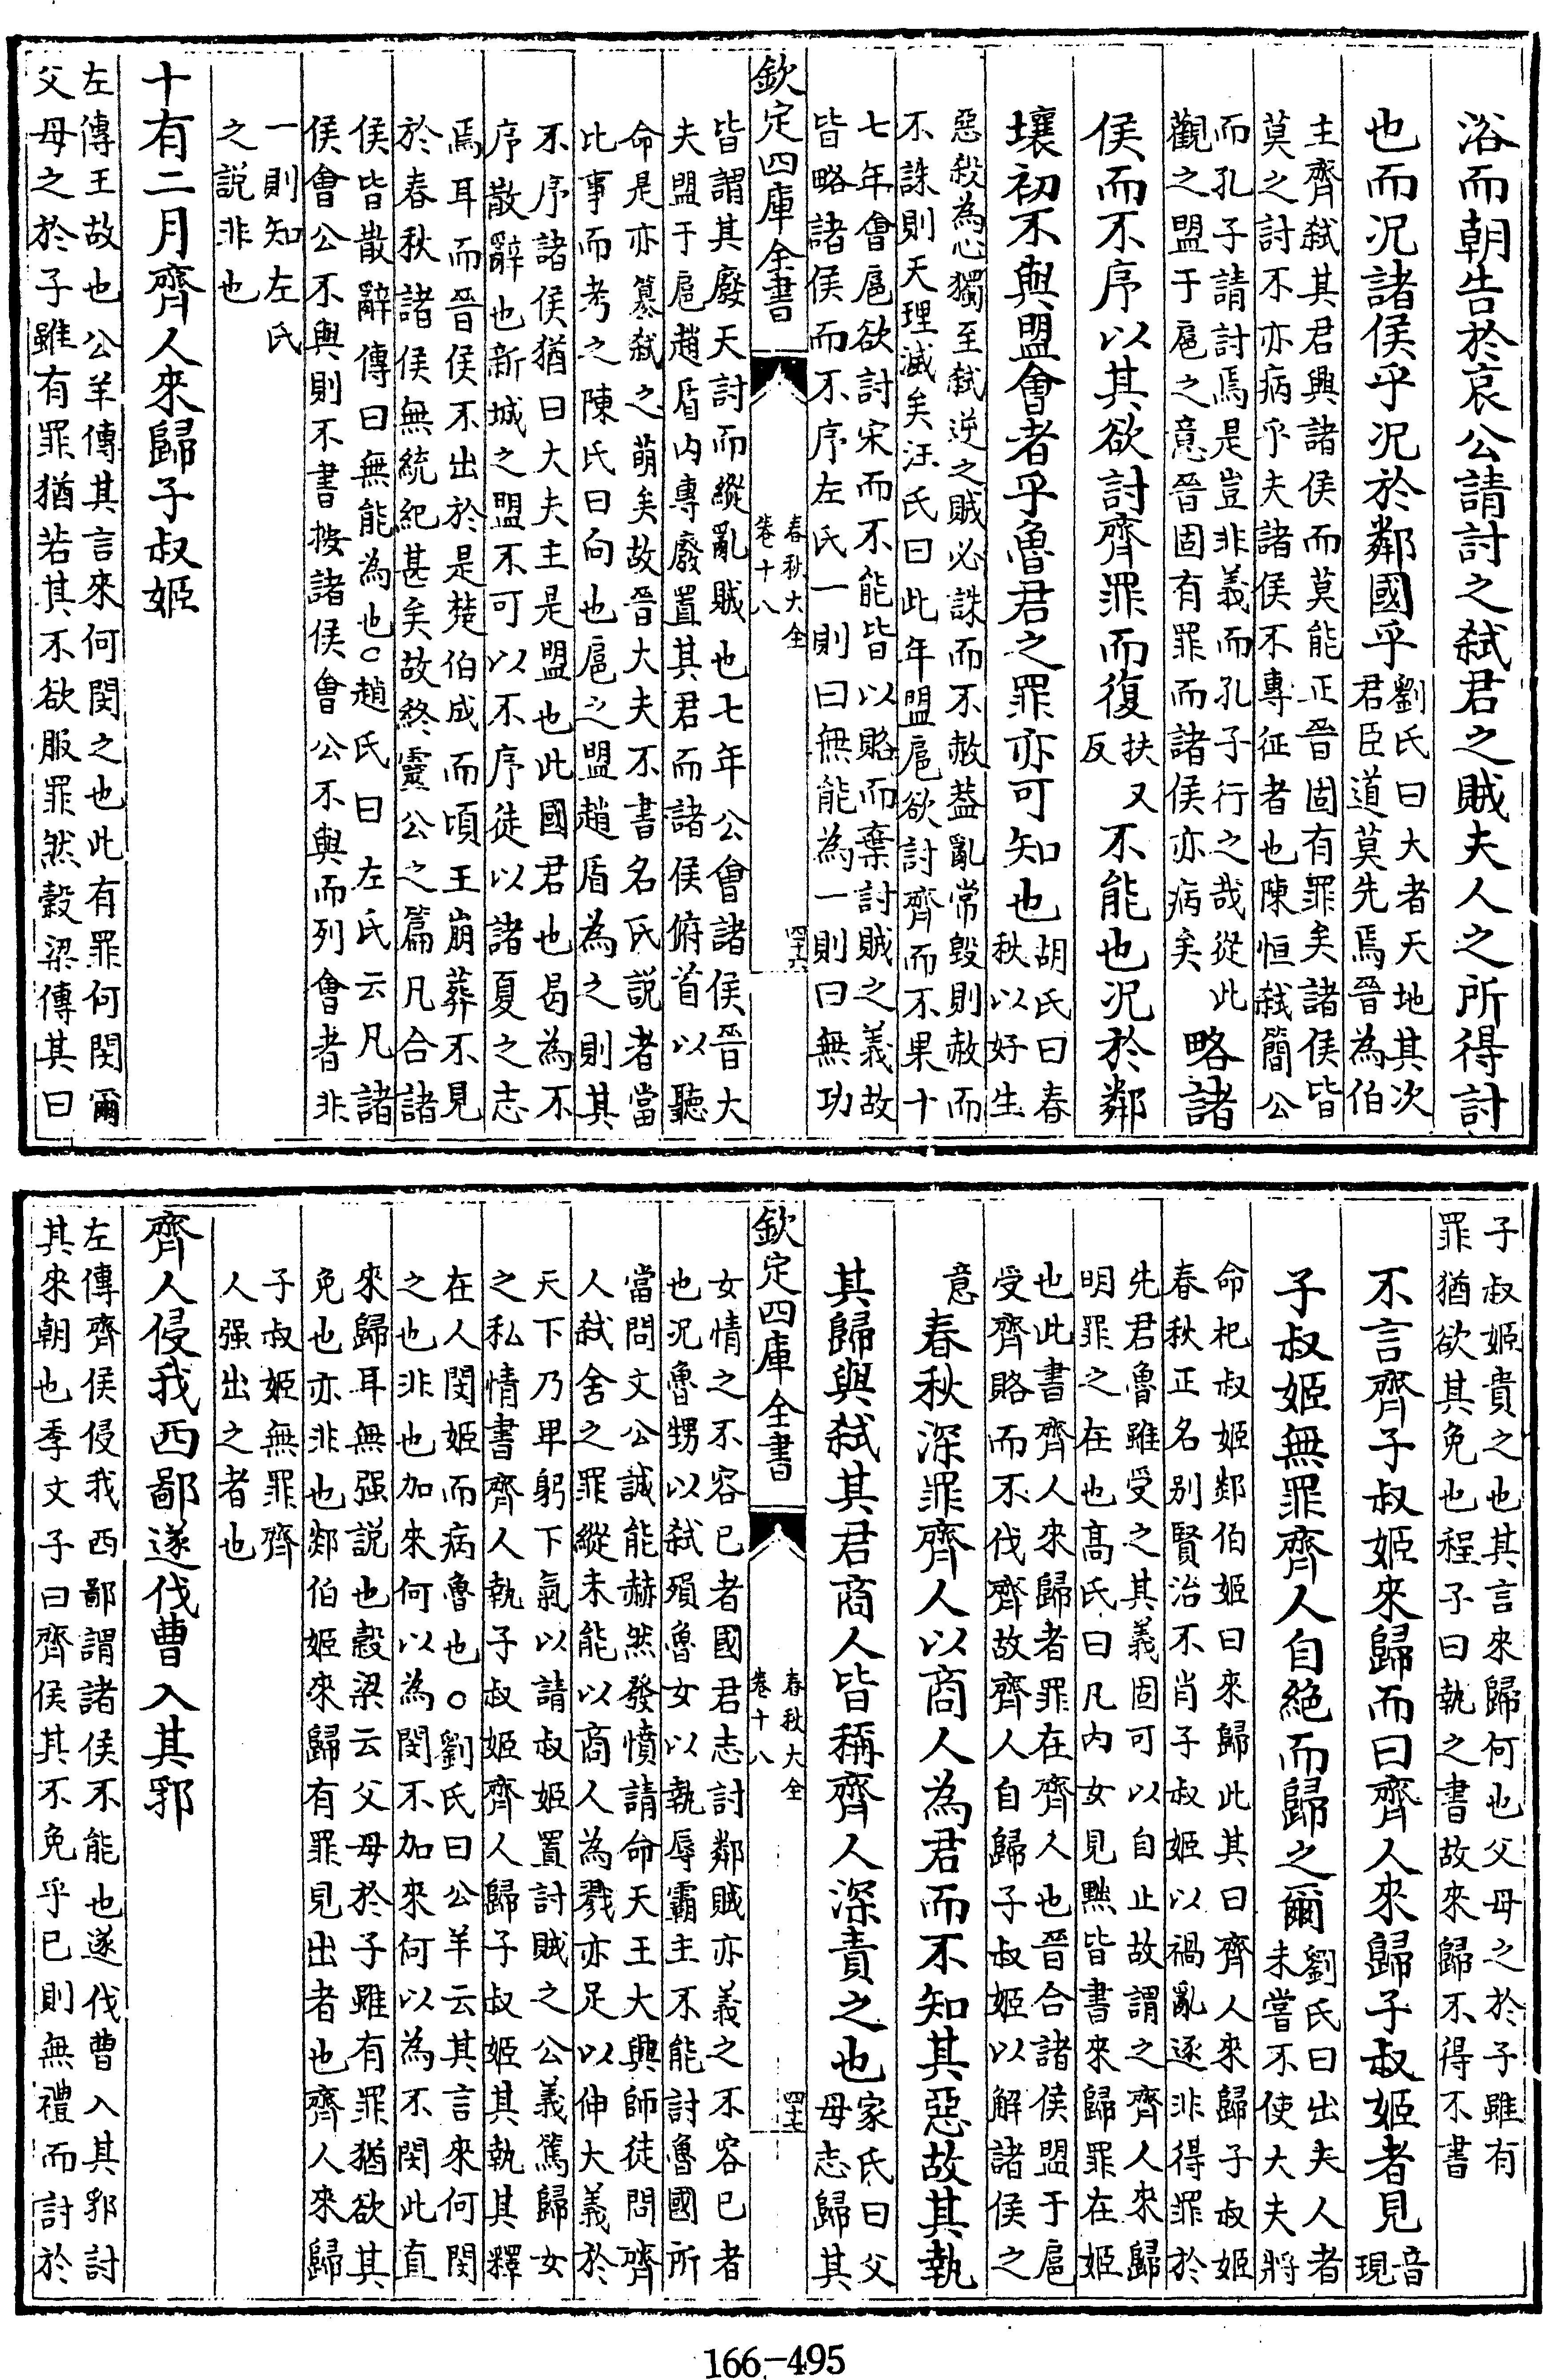 浴而朝告於哀公請討之弑君之賊夫人之所得討
也而况諸侯乎况於鄰國乎
劉氏曰大者天地其次
君臣道莫先焉晉為伯
主齊弑其君與諸侯而莫能正晉固有罪矣諸侯皆
莫之討不亦病乎夫諸侯不專征者也陳恒弑簡公
而孔子請討焉是豈非義而孔子行之哉從此
觀之盟于扈之意晉固有罪而諸侯亦病矣
略諸
侯而不序以其欲討齊罪而復
扶又
反
不能也况於鄰
壤初不與盟會者乎魯君之罪亦可知也
胡氏曰春
秋以好生
惡殺為心獨至弑逆之賊必誅而不赦葢亂常毁則赦而
不誅則天理滅矣汪氏曰此年盟扈欲討齊而不果十
七年會扈欲討宋而不能皆以賂而棄討賊之義故
皆略諸侯而不序左氏一則曰無能為一則曰無功
欽定四庫全書
春秋大全
卷十八
四十六
皆謂其廢天討而縱亂賊也七年公會諸侯晉大
夫盟于扈趙盾内專廢置其君而諸侯俯首以聽
命是亦簒弑之萌矣故晉大夫不書名氏説者當
比事而考之陳氏曰向也扈之盟趙盾為之則其
不序諸侯猶曰大夫主是盟也此國君也曷為不
序散辭也新城之盟不可以不序徒以諸夏之志
焉耳而晉侯不出於是楚伯成而頃王崩葬不見
於春秋諸侯無統紀甚矣故終靈公之篇凡合諸
侯皆散辭傳曰無能為也○趙氏曰左氏云凡諸
侯會公不與則不書按諸侯會公不與而列會者非
一則知左氏
之説非也
十有二月齊人來歸子叔姬
左傳王故也公羊傳其言來何閔之也此有罪何閔爾
父母之於子雖有罪猶若其不欲服罪然穀梁傳其曰
子叔姬貴之也其言來歸何也父母之於子雖有
罪猶欲其免也程子曰執之書故來歸不得不書
不言齊子叔姬來歸而曰齊人來歸子叔姬者見
音
現
子叔姬無罪齊人自絶而歸之爾
劉氏曰出夫人者
未嘗不使大夫將
命杞叔姬郯伯姬曰來歸此其曰齊人來歸子叔姬
春秋正名别賢治不肖子叔姬以禍亂逐非得罪於
先君魯雖受之其義固可以自止故謂之齊人來歸
明罪之在也髙氏曰凡内女見黜皆書來歸罪在姬
也此書齊人來歸者罪在齊人也晉合諸侯盟于扈
受齊賂而不伐齊故齊人自歸子叔姬以解諸侯之
意
春秋深罪齊人以商人為君而不知其惡故其執
其歸與弑其君商人皆稱齊人深責之也
家氏曰父
母志歸其
欽定四庫全書
春秋大全
卷十八
四十七
女情之不容已者國君志討鄰賊亦義之不容已者
也况魯甥以弑殞魯女以執辱霸主不能討魯國所
當問文公誠能赫然發憤請命天王大興師徒問齊
人弑舍之罪縱未能以商人為戮亦足以伸大義於
天下乃卑躬下氣以請叔姬置討賊之公義篤歸女
之私情書齊人執子叔姬齊人歸子叔姬其執其釋
在人閔姬而病魯也○劉氏曰公羊云其言來何閔
之也非也加來何以為閔不加來何以為不閔此直
來歸耳無强説也穀梁云父母於子雖有罪猶欲其
免也亦非也郯伯姬來歸有罪見出者也齊人來歸
子叔姬無罪齊
人强出之者也
齊人侵我西鄙遂伐曹入其郛
左傳齊侯侵我西鄙謂諸侯不能也遂伐曹入其郛討
其來朝也季文子曰齊侯其不免乎已則無禮而討於
166-495